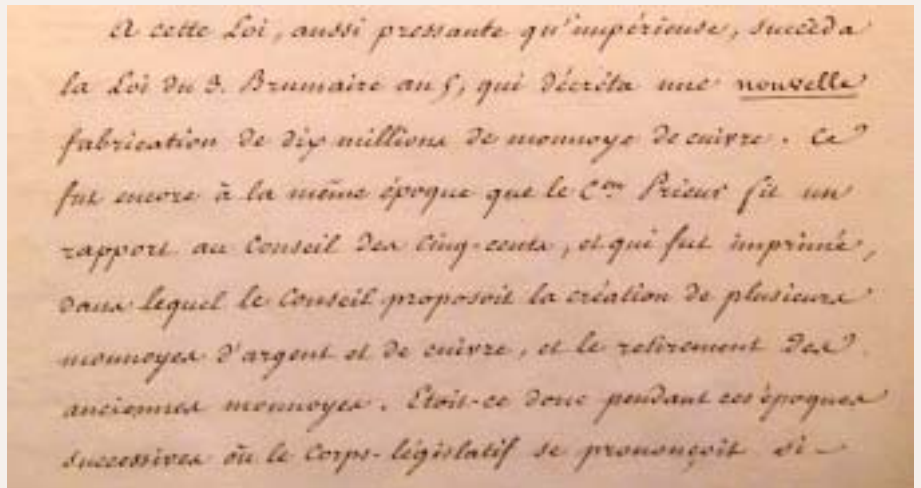 A cette Loi, aussi pressante qu'impérieuse, succéda
la Loi du 3. Brumaire an 5, qui décréta une nouvelle
fabrication de dix millions de monnoye de cuivre. Ce
fut encore à la même époque que le C.en Prieur fit un
rapport au Conseil des Cinq-cents, et qui fut imprimé,
dans lequel le Conseil proposoit la création de plusieurs
monnoyes d'argent et de cuivre, et le retirement des
anciennes monnoyes. Etoit-ce donc pendant ces époques
successives où le Corps-législatif se prononçoit si-